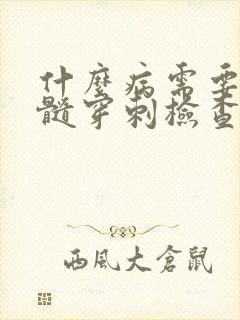 什麼病需要
髓穿刺檢查
西風大倉鼠